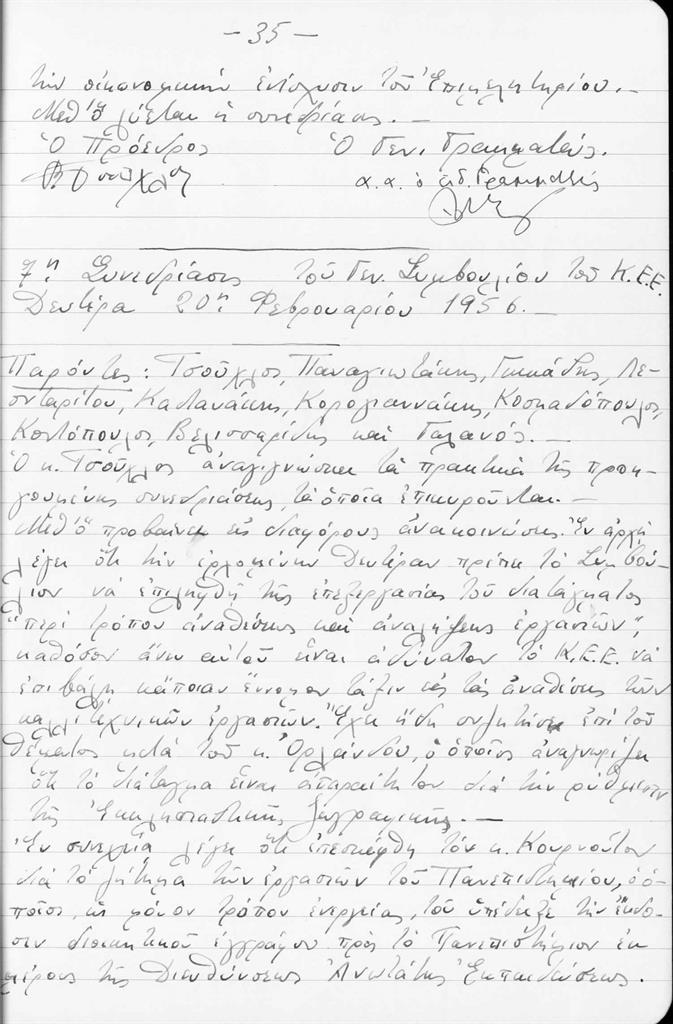 - 35 -
τὴν οἰκονομικὴν ἐνίσχυσιν τοῦ Ἐπιμελητηρίου. -
Μεθ' ὃ λύεται ἡ συνεδρίασις. -
Ὁ Πρόεδρος Ὁ Γεν. Γραμματεύς.
α. α. ὁ εἰδ. Γραμματεὺς
7η Συνεδρίασις τοῦ Γεν. Συμβουλίου τοῦ Κ.Ε.Ε.
Δευτέρα 20η Φεβρουαρίου 1956. -
Παρόντες: Τσοῦχλος, Παναγιωτάκης, Γκικάδης, Λε-
ονταρίτου, Καστανάκης, Κορογιαννάκης, Κοσμαδόπουλος,
Κοντόπουλος, Βελισσαρίδης καὶ Γαλανός. -
Ὁ κ. Τσοῦχλος ἀναγιγνώσκει τὰ πρακτικὰ τῆς προη-
γουμένης συνεδριάσεως, τὰ ὁποῖα ἐπικυροῦνται. -
Μεθ' ὃ προβαίνει εἰς διαφόρους ἀνακοινώσεις. Ἐν ἀρχῇ
λέγει ὅτι τὴν ἐρχομένην Δευτέραν πρέπει τὸ Συμβού-
λιον νὰ ἐπιληφθῇ τῆς ἐπεξεργασίας τοῦ διατάγματος
"περὶ τρόπου ἀναθέσεως καὶ ἀναλήψεως ἐργασιῶν",
καθόσον ἄνευ αὐτοῦ εἶναι ἀδύνατον τὸ Κ.Ε.Ε. νὰ
ἐπιβάλῃ κάποιαν ἔννομον τάξιν εἰς τὰς ἀναθέσεις τῶν
καλλιτεχνικῶν ἐργασιῶν. Ἔχει ἤδη συζητήσει ἐπὶ τοῦ
θέματος μετὰ τοῦ κ. Ὀρλάνδου, ὁ ὁποῖος ἀναγνωρίζει
ὅτι τὸ διάταγμα εἶναι ἀπαραίτητον διὰ τὴν ρύθμισιν
τῆς Ἐκκλησιαστικῆς ζωγραφικῆς. -
Ἐν συνεχείᾳ λέγει ὅτι ἐπεσκέφθη τὸν κ. Κουρνοῦτον
διὰ τὸ ζήτημα τῶν ἐργασιῶν τοῦ Πανεπιστημίου, ὁ ὁ-
ποῖος, ὡς μόνον τρόπον ἐνεργείας, τοῦ ὑπέδειξε τὴν ἔκδο-
σιν διοικητικοῦ ἐγγράφου πρὸς τὸ Πανεπιστήμιον ἐκ
μέρους τῆς Διευθύνσεως Ἀνωτάτης Ἐκπαιδεύσεως.